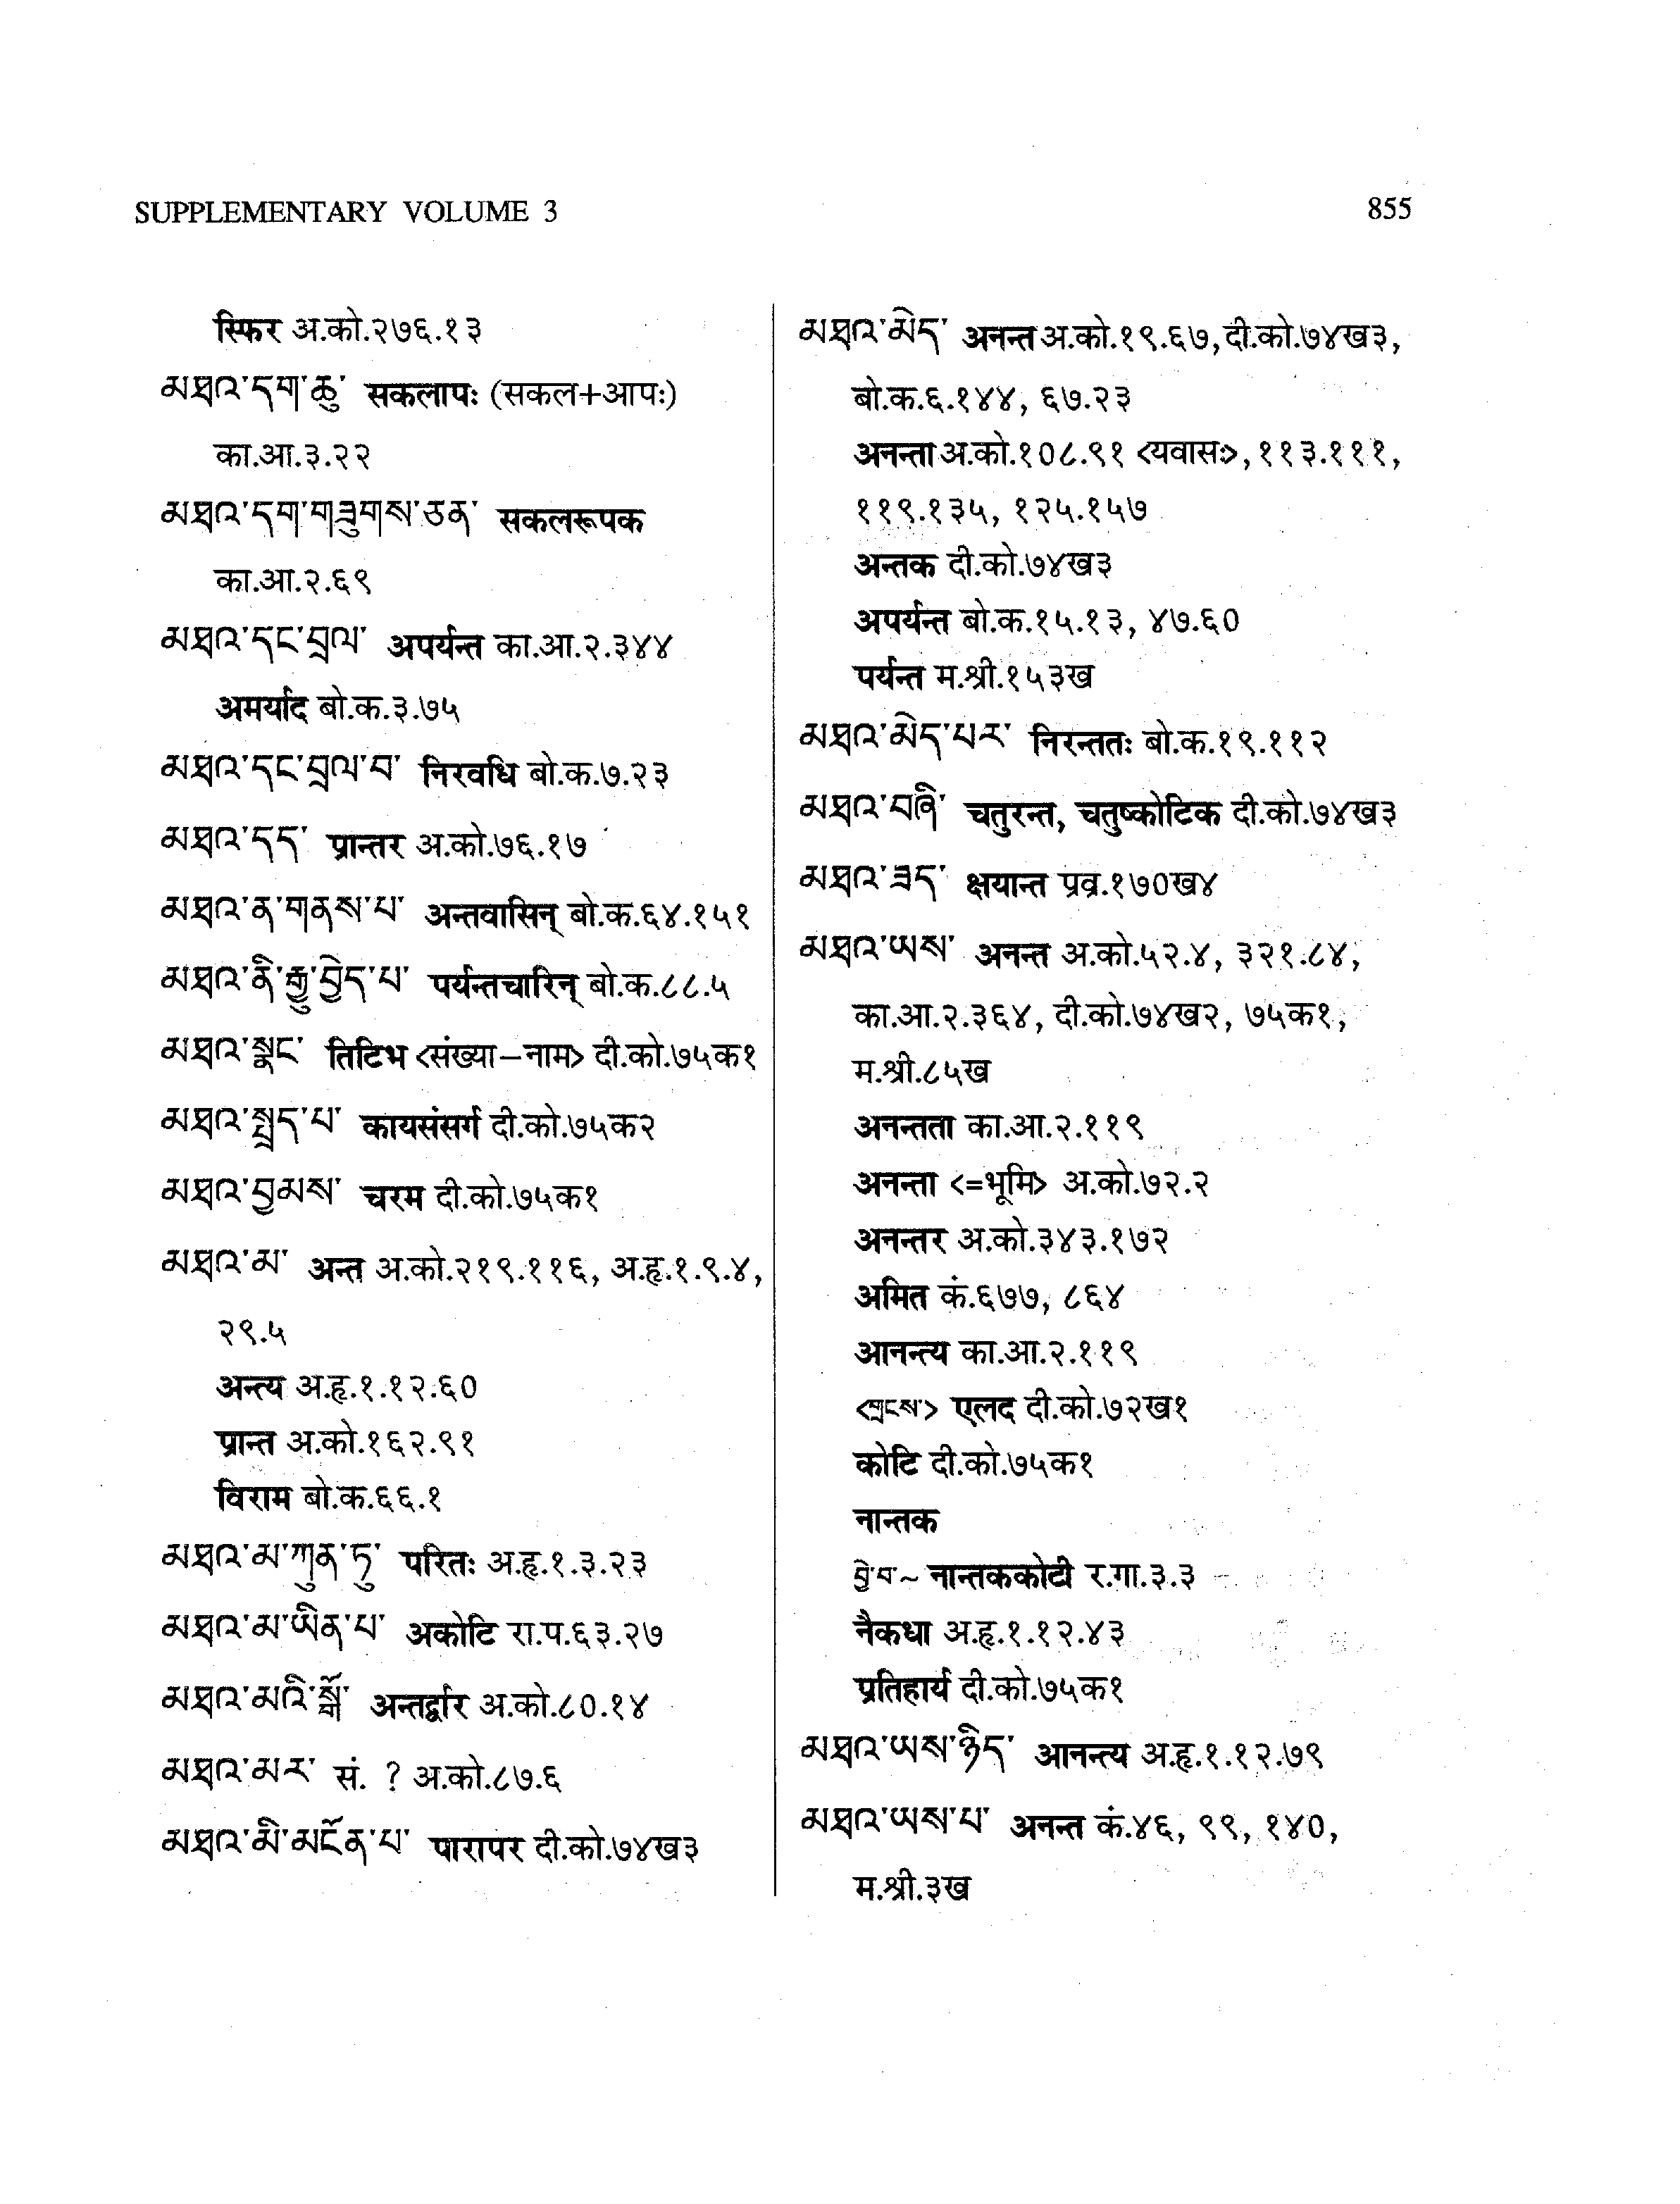 SUPPLEMENTARY VOLUME 3
855
स्फिर अ.को.२७६.१३
མཐའ་དག་ཆུ་ सकलापः (सकल+आपः)
का.आ.३.२२
མཐའ་དག་གཟུགས་ཅན་ सकलरूपक
का.आ.२.६९
མཐའ་དང་བྲལ་ अपर्यन्त का.आ.२.३४४
अमर्याद बो.क.३.७५
མཐའ་དང་བྲལ་བ་ निरवधि बो.क.७.२३
མཐའ་དད་ प्रान्तर अ.को.७६.१७
མཐའ་ན་གནས་པ་ अन्तवासिन् बो.क.६४.१५१
མཐའ་ནི་རྒྱུ་བྱེད་པ་ पर्यन्तचारिन् बो.क.८८.५
མཐའ་སྣང་ तिटिभ <संख्या–नाम> दी.को.७५क१
མཐའ་སྤྲད་པ་ कायसंसर्ग दी.को.७५क२
མཐའ་བྱམས་ चरम दी.को.७५क१
མཐའ་མ་ अन्त अ.को.२१९.११६, अ.हृ.१.९.४,
२९.५
अन्त्य अ.हृ.१.१२.६०
प्रान्त अ.को.१६२.९१
विराम बो.क.६६.१
མཐའ་མ་ཀུན་ཏུ་ परितः अ.हृ.१.३.२३
མཐའ་མ་ཡིན་པ་ अकोटि रा.प.६३.२७
མཐའ་མའི་སྒོ་ अन्तर्द्वार अ.को.८०.१४
མཐའ་མར་ सं. ? अ.को.८७.६
མཐའ་མི་མངོན་པ་ पारापर दी.को.७४ख३
མཐའ་མེད་ अनन्त अ.को.१९.६७, दी.को.७४ख३,
बो.क.६.१४४, ६७.२३
अनन्ता अ.को.१०८.९१ <यवासः>, ११३.१११,
११९.१३५, १२५.१५७
अन्तक दी.को.७४ख३
अपर्यन्त बो.क.१५.१३, ४७.६०
पर्यन्त म.श्री.१५३ख
མཐའ་མེད་པར་ निरन्ततः बो.क.१९.११२
མཐའ་བཞི་ चतुरन्त, चतुष्कोटिक दी.को.७४ख३
མཐའ་ཟད་ क्षयान्त प्रव्र.१७०ख४
མཐའ་ཡས་ अनन्त अ.को.५२.४, ३२१.८४,
का.आ.२.३६४, दी.को.७४ख२, ७५क१,
म.श्री.८५ख
अनन्तता का.आ.२.११९
अनन्ता <=भूमि> अ.को.७२.२
अनन्तर अ.को.३४३.१७२
अमित कं.६७७, ८६४
आनन्त्य का.आ.२.११९
<གྲངས་> एलद दी.को.७२ख१
कोटि दी.को.७५क१
नान्तक
བྱེ་བ་~ नान्तककोटी र.गा.३.३
नैकधा अ.हृ.१.१२.४३
प्रतिहार्य दी.को.७५क१
མཐའ་ཡས་ཉིད་ आनन्त्य अ.हृ.१.१२.७९
མཐའ་ཡས་པ་ अनन्त कं.४६, ९९, १४०,
म.श्री.३ख